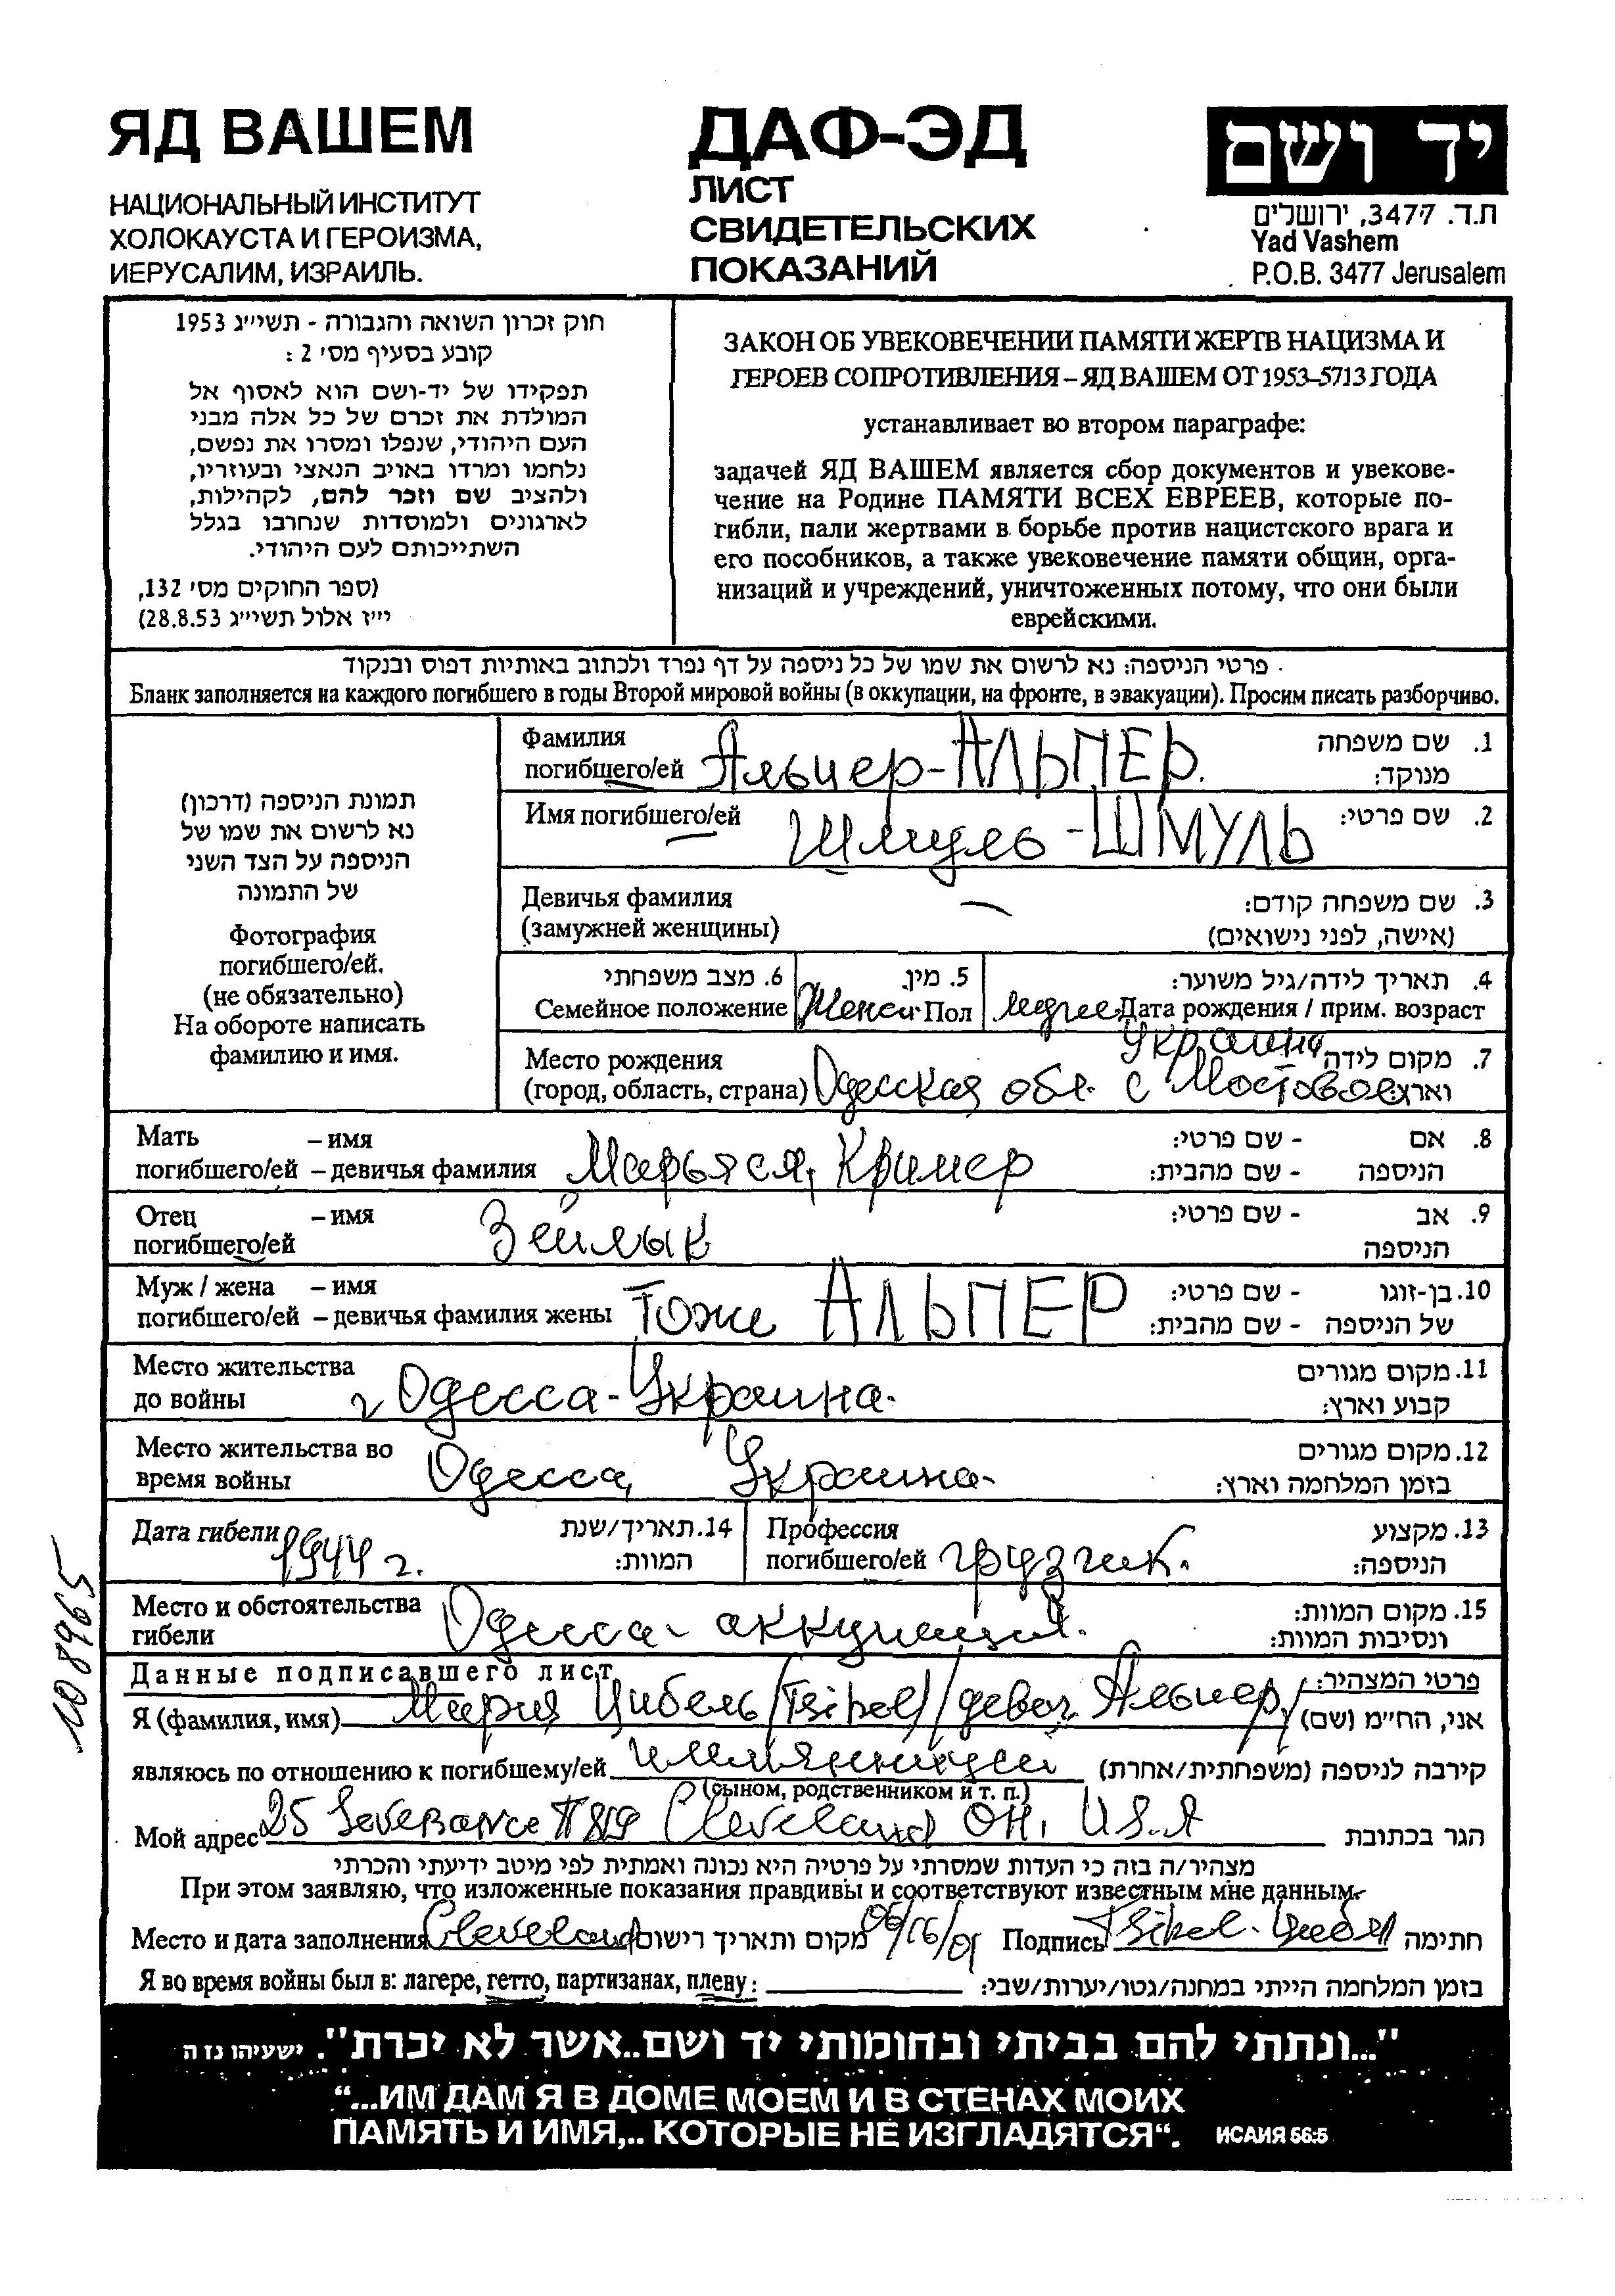 ЯД ВАШЕМ
НАЦИОНАЛЬНЫЙ ИНСТИТУТ
ХОЛОКАУСТА И ГЕРОИЗМА,
ИЕРУСАЛИМ, ИЗРАИЛЬ.
ДАФ-ЭД
ЛИСТ
СВИДЕТЕЛЬСКИХ
ПОКАЗАНИЙ
יד ושם
ת.ד. 3477, ירושלים
Yad Vashem
P.O.B. 3477 Jerusalem
חוק זכרון השואה והגבורה - תשי״ג 1953
קובע בסעיף מס׳ 2 :
תפקידו של יד-ושם הוא לאסוף אל
המולדת את זכרם של כל אלה מבני
העם היהודי, שנפלו ומסרו את נפשם,
נלחמו ומרדו באויב הנאצי ובעוזריו,
ולהציב שם וזכר להם, לקהילות,
לארגונים ולמוסדות שנחרבו בגלל
השתייכותם לעם היהודי.
(ספר החוקים מס׳ 132,
י״ז אלול תשי״ג 28.8.53)
ЗАКОН ОБ УВЕКОВЕЧЕНИИ ПАМЯТИ ЖЕРТВ НАЦИЗМА И
ГЕРОЕВ СОПРОТИВЛЕНИЯ – ЯД ВАШЕМ ОТ 1953–5713 ГОДА
устанавливает во втором параграфе:
задачей ЯД ВАШЕМ является сбор документов и увекове-
чение на Родине ПАМЯТИ ВСЕХ ЕВРЕЕВ, которые по-
гибли, пали жертвами в борьбе против нацистского врага и
его пособников, а также увековечение памяти общин, орга-
низаций и учреждений, уничтоженных потому, что они были
еврейскими.
פרטי הניספה: נא לרשום את שמו של כל ניספה על דף נפרד ולכתוב באותיות דפוס ובנקוד
Бланк заполняется на каждого погибшего в годы Второй мировой войны (в оккупации, на фронте, в эвакуации). Просим писать разборчиво.
תמונת הניספה (דרכון)
נא לרשום את שמו של
הניספה על הצד השני
של התמונה
Фотография
погибшего/ей.
(не обязательно)
На обороте написать
фамилию и имя.
Фамилия
погибшего/ей Альпер-АЛЬПЕР.
1. שם משפחה
מנוקד:
Имя погибшего/ей Шмуль-ШМУЛЬ
2. שם פרטי:
Девичья фамилия —
(замужней женщины)
3. שם משפחה קודם:
(אישה, לפני נישואים)
6. מצב משפחתי
Семейное положение
5. מין.
Пол
4. תאריך לידה/גיל משוער:
Дата рождения / прим. возраст
Место рождения
(город, область, страна) Одесская обл. с Мостовое
Украина
7. מקום לידה
וארץ:
Мать – имя
погибшего/ей – девичья фамилия Марьяся, Кример
8. אם - שם פרטי:
הניספה - שם מהבית:
Отец – имя
погибшего/ей Зейлык
9. אב - שם פרטי:
הניספה
Муж / жена – имя
погибшего/ей – девичья фамилия жены Тоже АЛЬПЕР
10. בן-זוגו - שם פרטי:
של הניספה - שם מהבית:
Место жительства
до войны г Одесса-Украина.
11. מקום מגורים
קבוע וארץ:
Место жительства во
время войны Одесса, Украина.
12. מקום מגורים
בזמן המלחמה וארץ:
Дата гибели 1944 г.
14. תאריך/שנת
המוות:
Профессия
погибшего/ей грузчик.
13. מקצוע
הניספה:
Место и обстоятельства
гибели Одесса- аккупация.
15. מקום המוות:
ונסיבות המוות:
Данные подписавшего лист
פרטי המצהיר:
Я (фамилия, имя) Мария Цибель/Tsibel/девич Альпер/ אני, הח״מ (שם)
являюсь по отношению к погибшему/ей племянницей קירבה לניספה (משפחתית/אחרת)
(сыном, родственником и т. п.)
Мой адрес 25 Severance #819 Cleveland OH. USA הגר בכתובת
מצהיר/ה בזה כי העדות שמסרתי על פרטיה היא נכונה ואמתית לפי מיטב ידיעתי והכרתי
При этом заявляю, что изложенные показания правдивы и соответствуют известным мне данным.
Место и дата заполнения Cleveland מקום ותאריך רישום 06/16/01 Подпись Tsibel-Цибель חתימה
Я во время войны был в: лагере, гетто, партизанах, плену: בזמן המלחמה הייתי במחנה/גטו/יערות/שבי:
"...ונתתי להם בביתי ובחומותי יד ושם..אשר לא יכרת". ישעיהו נז ה
“...ИМ ДАМ Я В ДОМЕ МОЕМ И В СТЕНАХ МОИХ
ПАМЯТЬ И ИМЯ,.. КОТОРЫЕ НЕ ИЗГЛАДЯТСЯ“. ИСАИЯ 56:5
108965